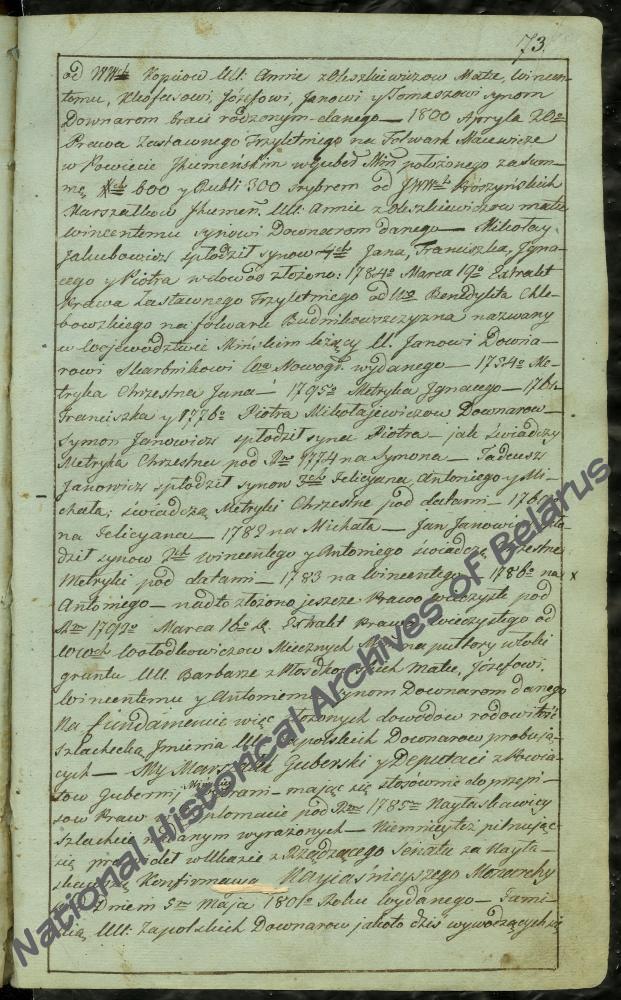 73.
od WWch Kopciow Ull: Annie z Oleszkiewiczow Matce, Wincen-
temu, Kleofasowi, Józefowi, Janowi y Tomaszowi synom
Downarom braci rodzonym danego — 1800 Apryla 20o
Prawa Zastawnego Trzyletniego na Folwark Macewicze
w Powiecie Jhumeńskim w Guber Miń położonego za sum-
mę 600 y Rubli 300 srybrem od JWWch Prószyńskich
Marszałkow Jhumeń. Ull: Annie z Oleszkiewiczow matce
Wincentemu synowi Downarom danego — Mikołay
Jakubowicz spłodził synow 4ch Jana, Franciszka, Jgna-
cego y Piotra w dowod złożono: 1784o Marca 19o Extrakt
Prawa Zastawnego Trzyletniego od Uro Benedykta Chle-
bowskiego na folwark Budnikowszczyzna nazwany
w Wojewodztwie Mińskim leżący U. Janowi Downa-
rowi Skarbnikowi Wa Nowogr. wydanego — 1754o Me-
tryka Chrzestna Jana — 1795o Metryka Jgnacego — 176
Franciszka y 1776o Piotra Mikołajewiczow Downarow —
Symon Janowicz spłodził syna Piotra — jak świadczy
Metryka Chrzestna pod Rm 1774 na Symona — Tadeusz
Janowicz spłodził synow 3ch Felicyana, Antoniego y Mi-
chała; świadczą Metryki Chrzestne pod datami — 176
na Felicyana — 1782 na Michała — Jan Janowicz spło-
dził synow 2ch Wincentego y Antoniego świadczą Chrzestne
Metryki pod datami — 1783 na Wincentego — 1786o na x
Antoniego — nadto złożono jeszcze Prawo wieczyste pod
Rm 1792o Marca 16o d. Extrakt Prawa wieczystego od
WWch Wołodkowiczow Miecznych na pułtory włoki
gruntu Ull. Barbarze z Matce, Józefowi,
Wincentemu y Antoniemu synom Downarom danego
Na fundamencie więc złożonych dowodow rodowitość
szlachecką Jmienia Ull. Zapolskich Downarow probują-
cych — My Marszałek Guberski y Deputaci z Powia-
tow Gubernij Mińskiey zebrani — mając się stosównie do przepi-
sow Praw w Dyplomacie pod Rm 1785m Naytaskawiey
szlachcie nadanym wyrażonych — Niemniey też pilnując
się prawideł w Ukazie z Rządzącego Senatu za Nayła-
skawszą Konfirmacyą Nayiaśnieyszego Monarchy
Dniem 5m Maja 1801o Roku wydanego — Fami-
lią Ull. Zapolskich Downarow jakoto dziś wywodzących się
National Historical Archives of Belarus